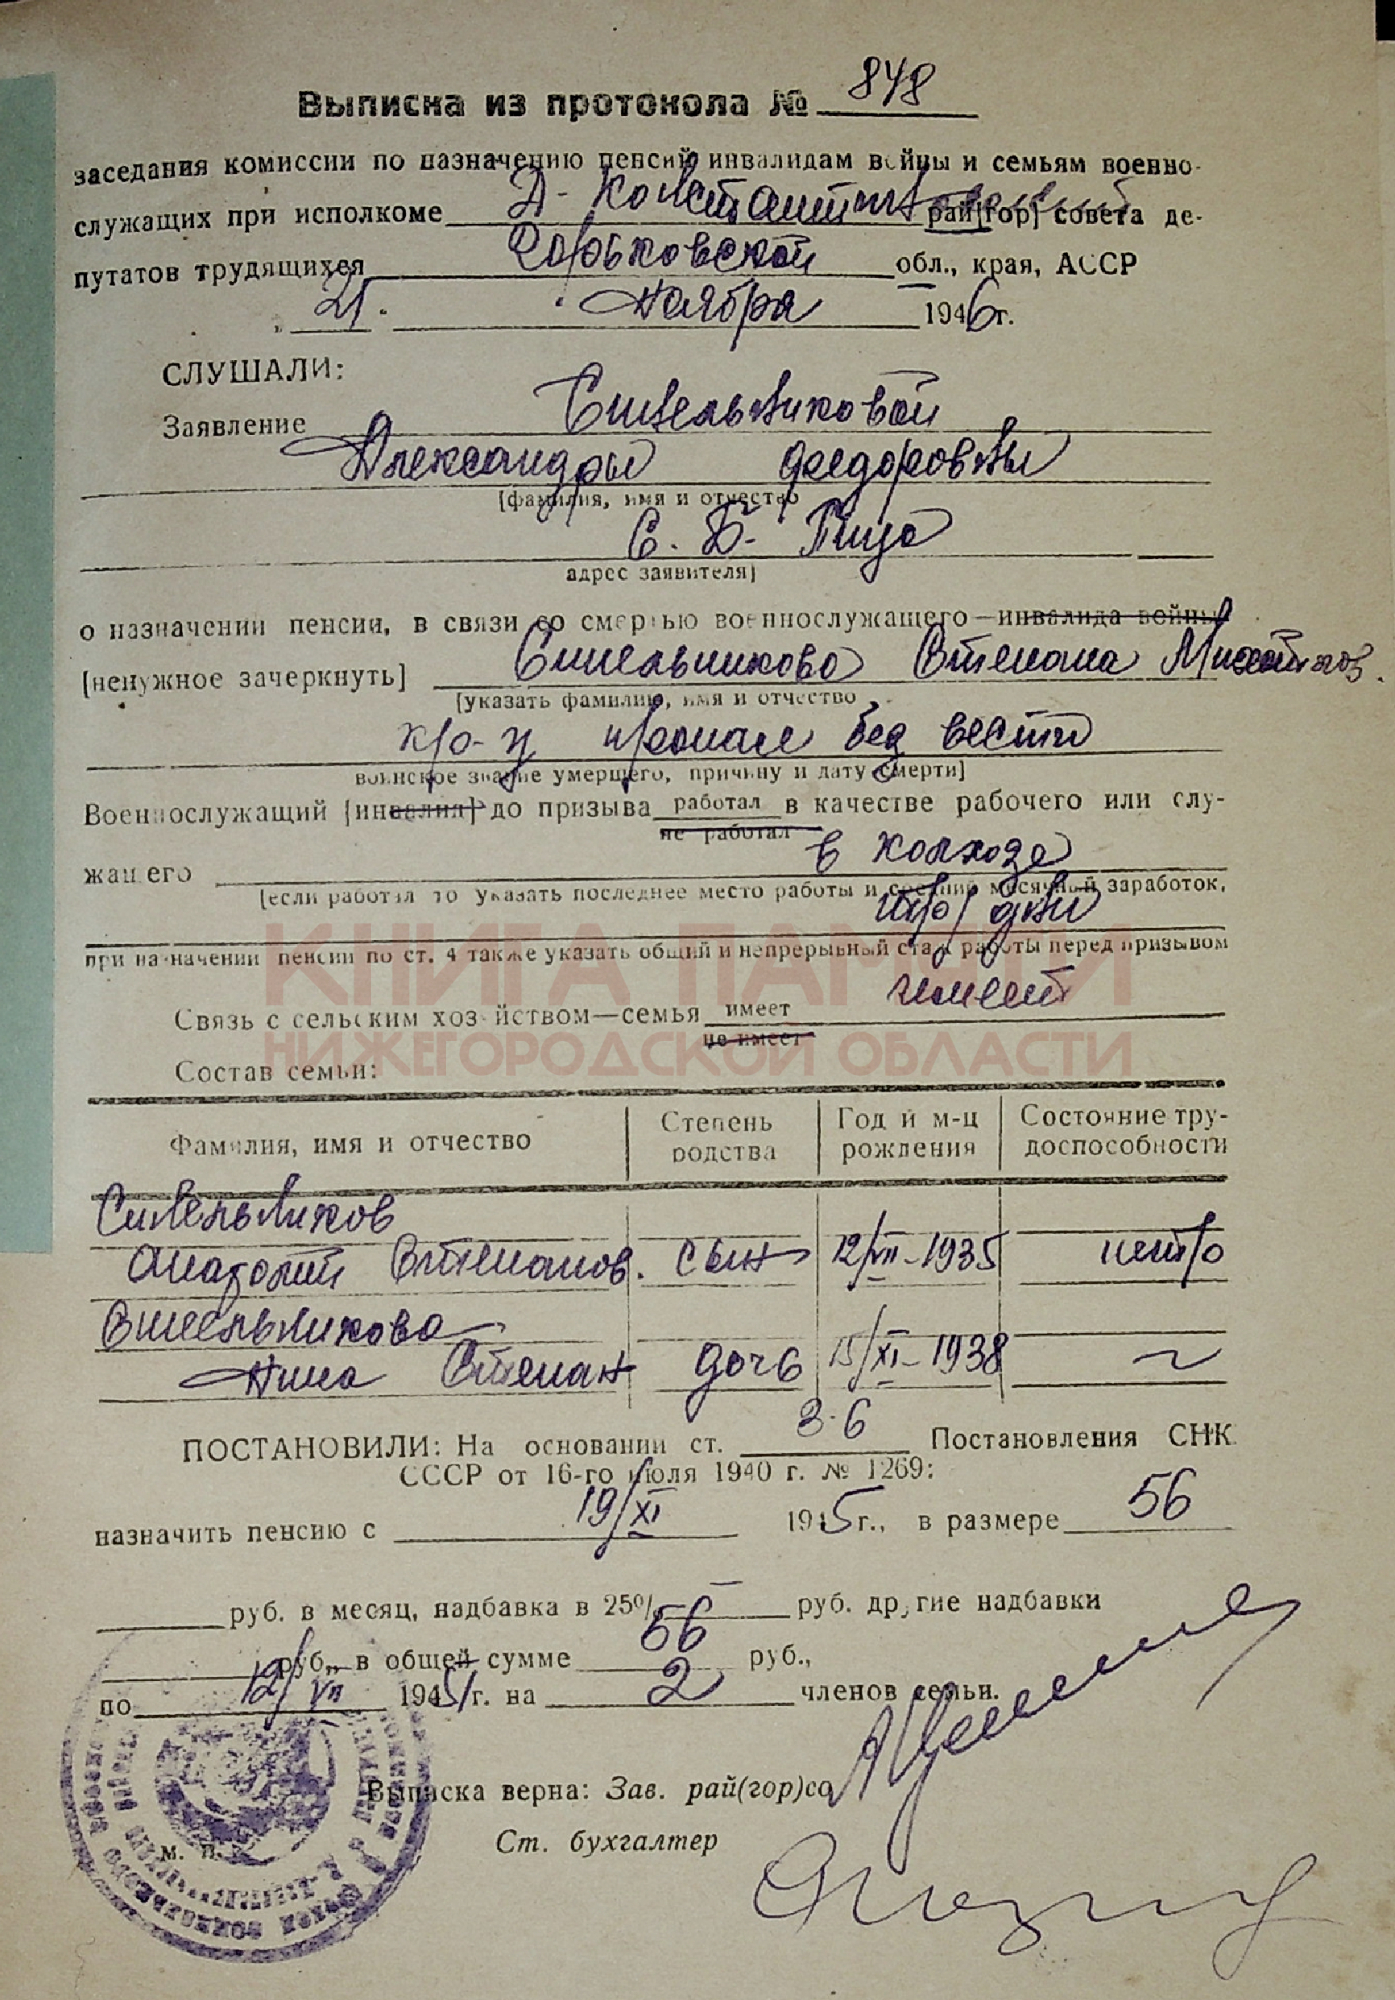 Выписка из протокола № 848
заседания комиссии по назначению пенсий инвалидам войны и семьям военно-
служащих при исполкоме Д-Константиновский рай[гор] совета де-
путатов трудящихся Горьковской обл., края, АССР
„ 21 “ Ноября 1946 г.
СЛУШАЛИ:
Заявление Синельниковой
Александры Федоровны
[фамилия, имя и отчество
С. Б- Пица
адрес заявителя]
о назначении пенсии, в связи со смертью военнослужащего—инвалида войны
[ненужное зачеркнуть] Синельникова Степана Михайлов.
[указать фамилию, имя и отчество
кр-ц пропал без вести
воинское звание умершего, причину и дату смерти]
Военнослужащий [инвалид] до призыва работал в качестве рабочего или слу-
не работал
жащего в колхозе
[если работал то указать последнее место работы и средний месячный заработок,
тр/дни
при назначении пенсии по ст. 4 также указать общий и непрерывный стаж работы перед призывом
КНИГА ПАМЯТИ
имеет
Связь с сельским хозяйством—семья имеет
не имеет
НИЖЕГОРОДСКОЙ ОБЛАСТИ
Состав семьи:
Фамилия, имя и отчество Степень родства Год и м-ц рождения Состояние тру-доспособности
Синельников
Анатолий Степанов. сын 12/VII-1935 нетр
Синельникова
Нина Степан дочь 15/XI-1938 ~
ПОСТАНОВИЛИ: На основании ст. 3-6 Постановления СНК
СССР от 16-го июля 1940 г. № 1269:
назначить пенсию с 19/XI 1945 г., в размере 56
руб. в месяц, надбавка в 25% — руб. другие надбавки
руб., в общей сумме 56 руб.,
по 12/VII 1951 г. на 2 членов семьи.
Выписка верна: Зав. рай(гор)со
Ст. бухгалтер
М. П.